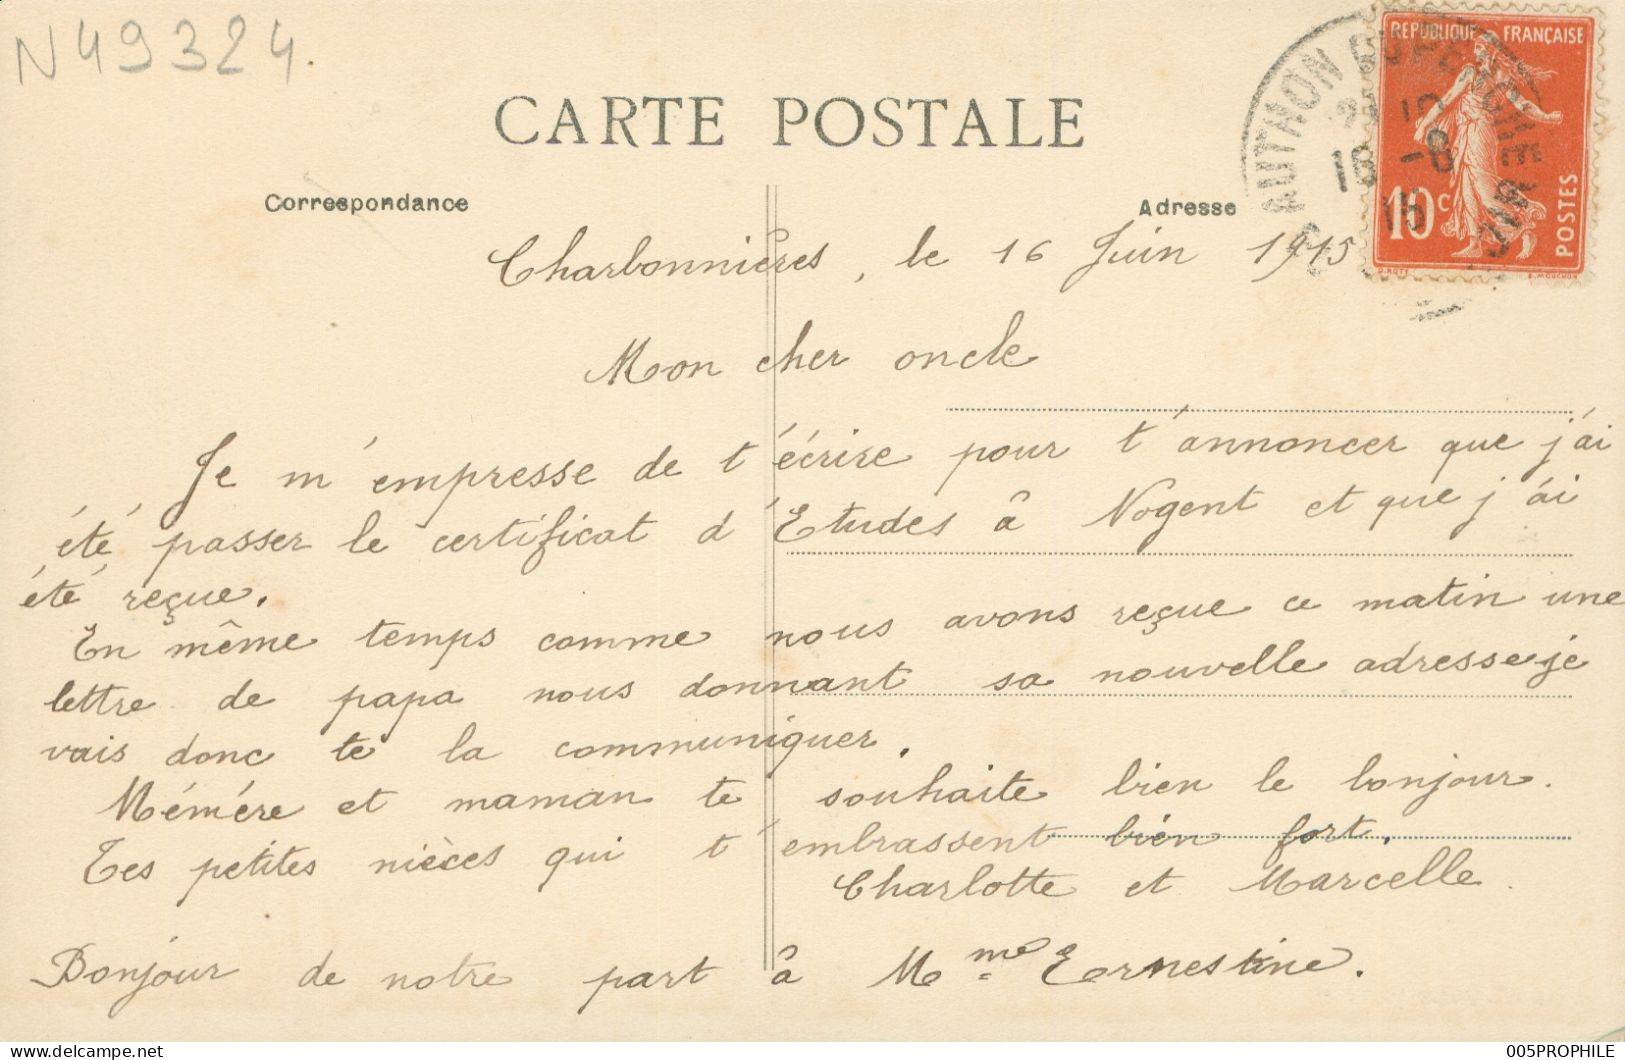 N49324.
CARTE POSTALE
Correspondance
Adresse
RÉPUBLIQUE FRANÇAISE
10 c
POSTES
O. ROTY
E. MOUCHON
AUTHON DU PERCHE
18 -6
15
Charbonnières, le 16 Juin 1915
Mon cher oncle
Je m'empresse de t'écrire pour t'annoncer que j'ai
été passer le certificat d'Etudes à Nogent et que j'ai
été reçue.
En même temps comme nous avons reçue ce matin une
lettre de papa nous donnant sa nouvelle adresse je
vais donc te la communiquer.
Mémére et maman te souhaite bien le bonjour.
Tes petites nièces qui t'embrassent bien fort.
Charlotte et Marcelle.
Bonjour de notre part à Mme Ernestine.
delcampe.net
005PROPHILE